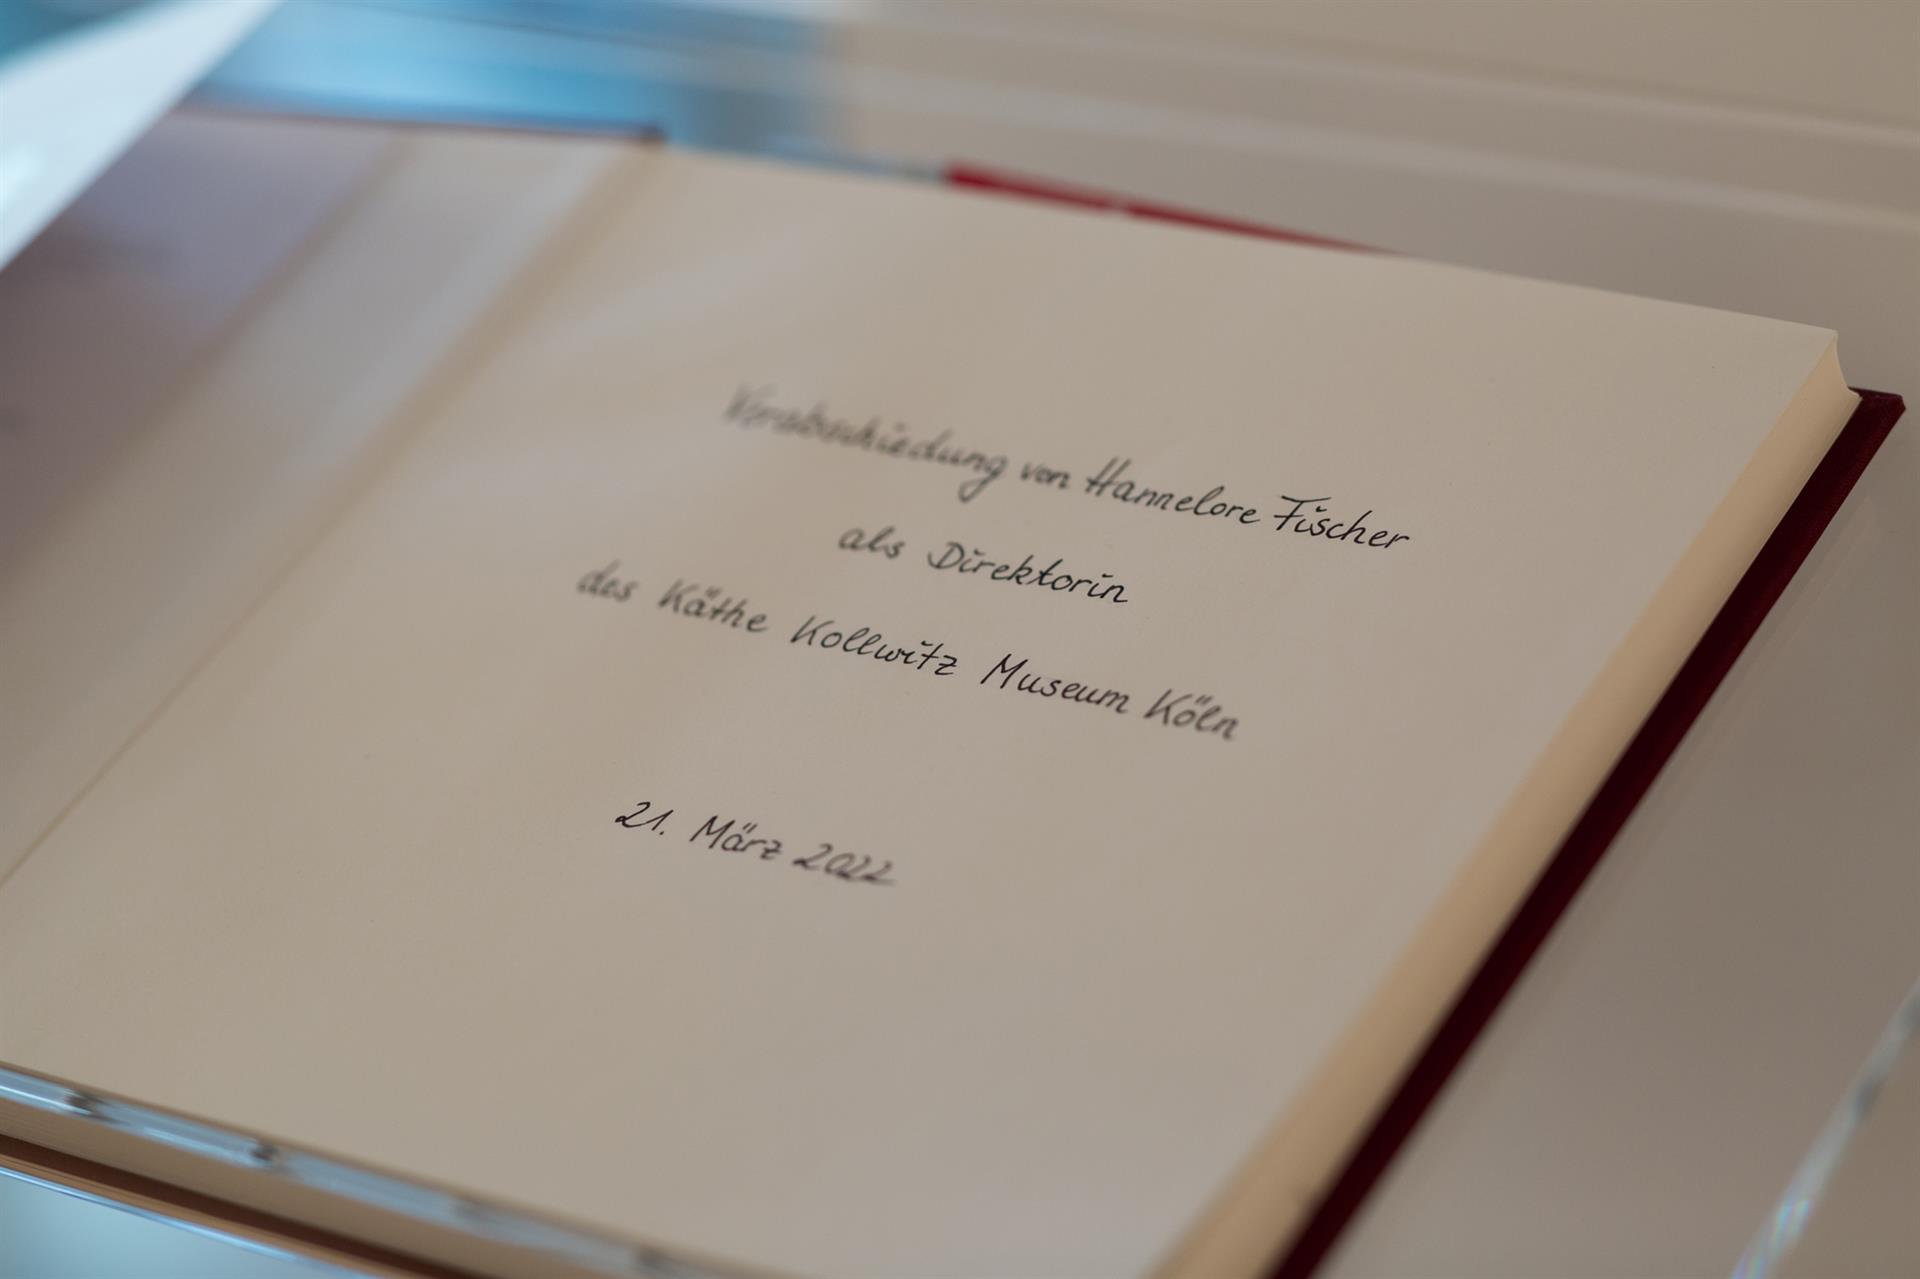 Verabschiedung von Hannelore Fischer
als Direktorin
des Käthe Kollwitz Museum Köln
21. März 2022